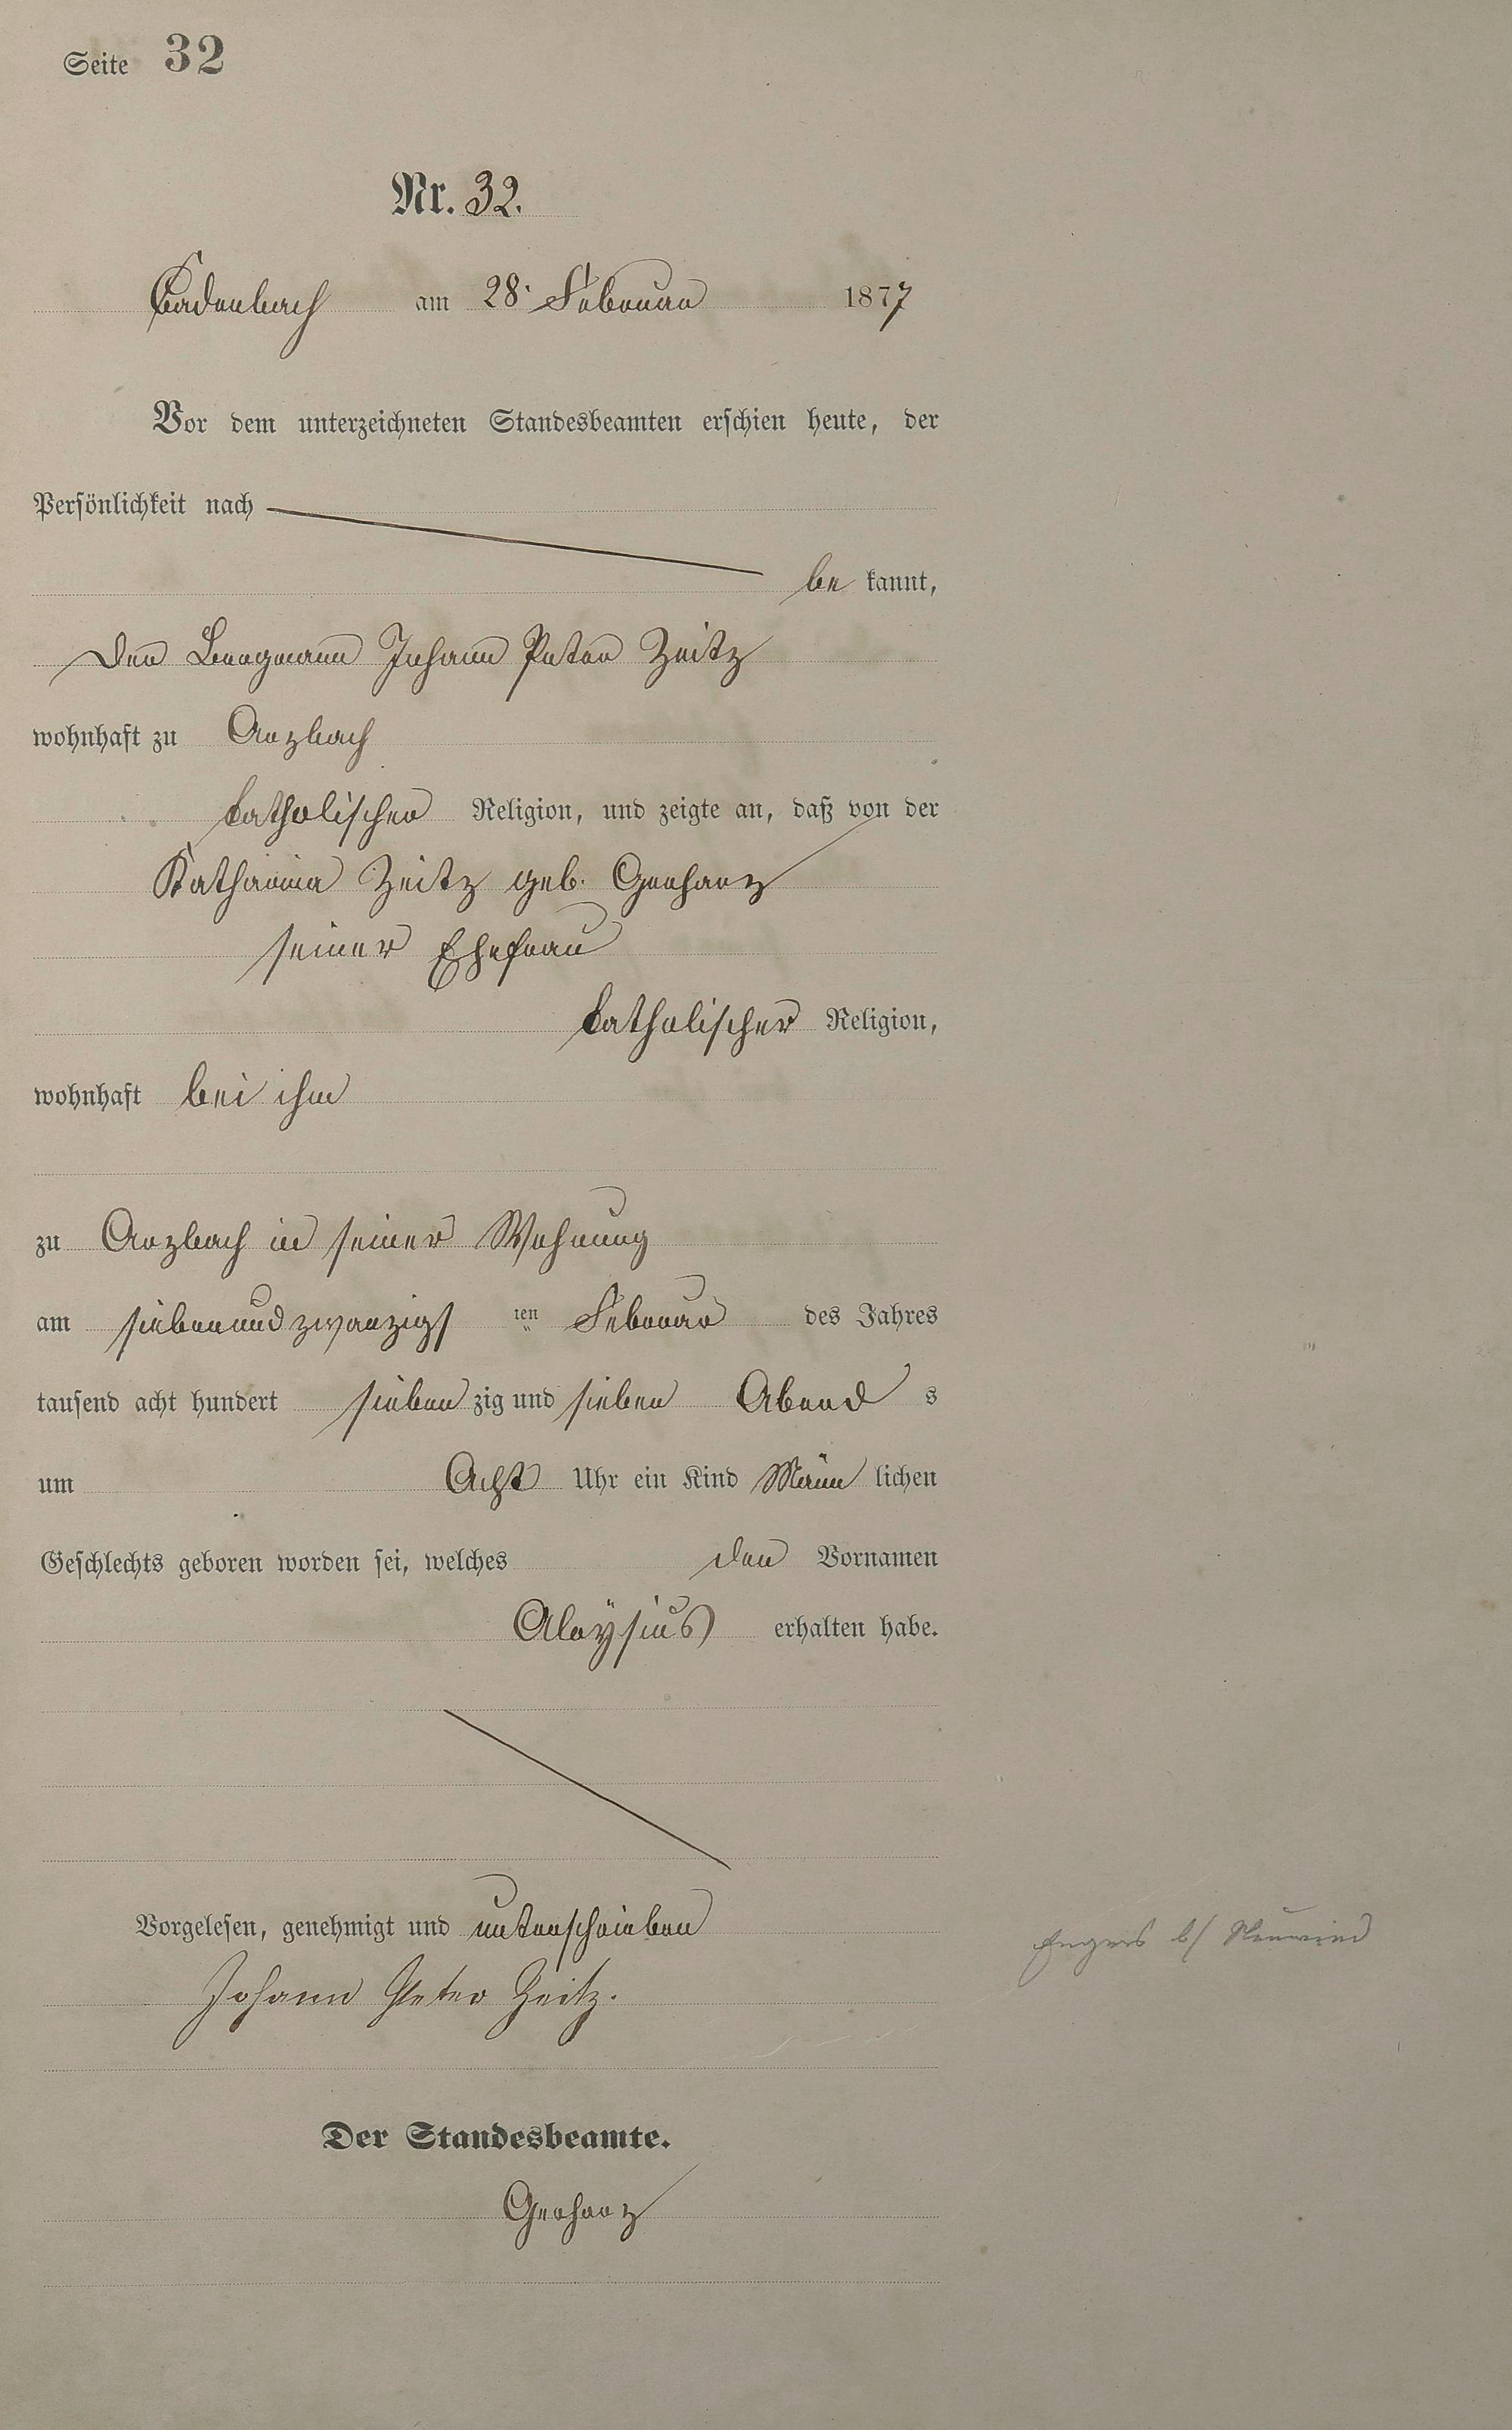 Seite 32
Nr. 32.
Cadenbach am 28. Februar 1877
Vor dem unterzeichneten Standesbeamten erschien heute, der
Persönlichkeit nach
be kannt,
der Bergmann Johann Peter Zeitz
wohnhaft zu Arzbach
katholischer Religion, und zeigte an, daß von der
Katharina Zeitz geb. Gerharz
seiner Ehefrau
katholischer Religion,
wohnhaft bei ihm
zu Arzbach in seiner Wohnung
am siebenundzwanzigs ten Februar des Jahres
tausend acht hundert sieben zig und sieben Abend s
um Acht Uhr ein Kind Männ lichen
Geschlechts geboren worden sei, welches den Vornamen
Aloÿsius erhalten habe.
Vorgelesen, genehmigt und unterschrieben
Engers b/ Neuwied
Johann Peter Zeitz.
Der Standesbeamte.
Gerharz